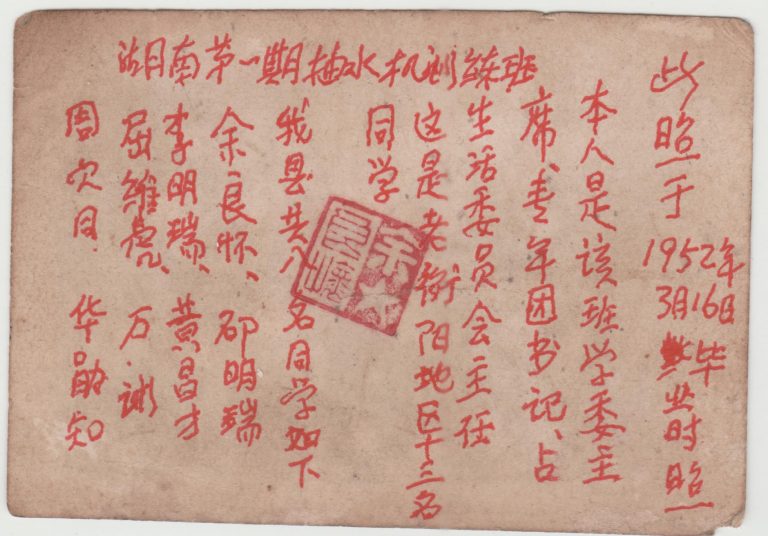 湖南第一期抽水机训练班
此照于
1952年
3月16日
毕业时照
本人是该班学委主
席、青年团书记、占
生活委员会主任
这是老衡阳地区十三名
同学
我县共八名同学如下
余良怀、邵明瑞
李明瑞、黄昌才
屈維亮、万
周次日 华勋知